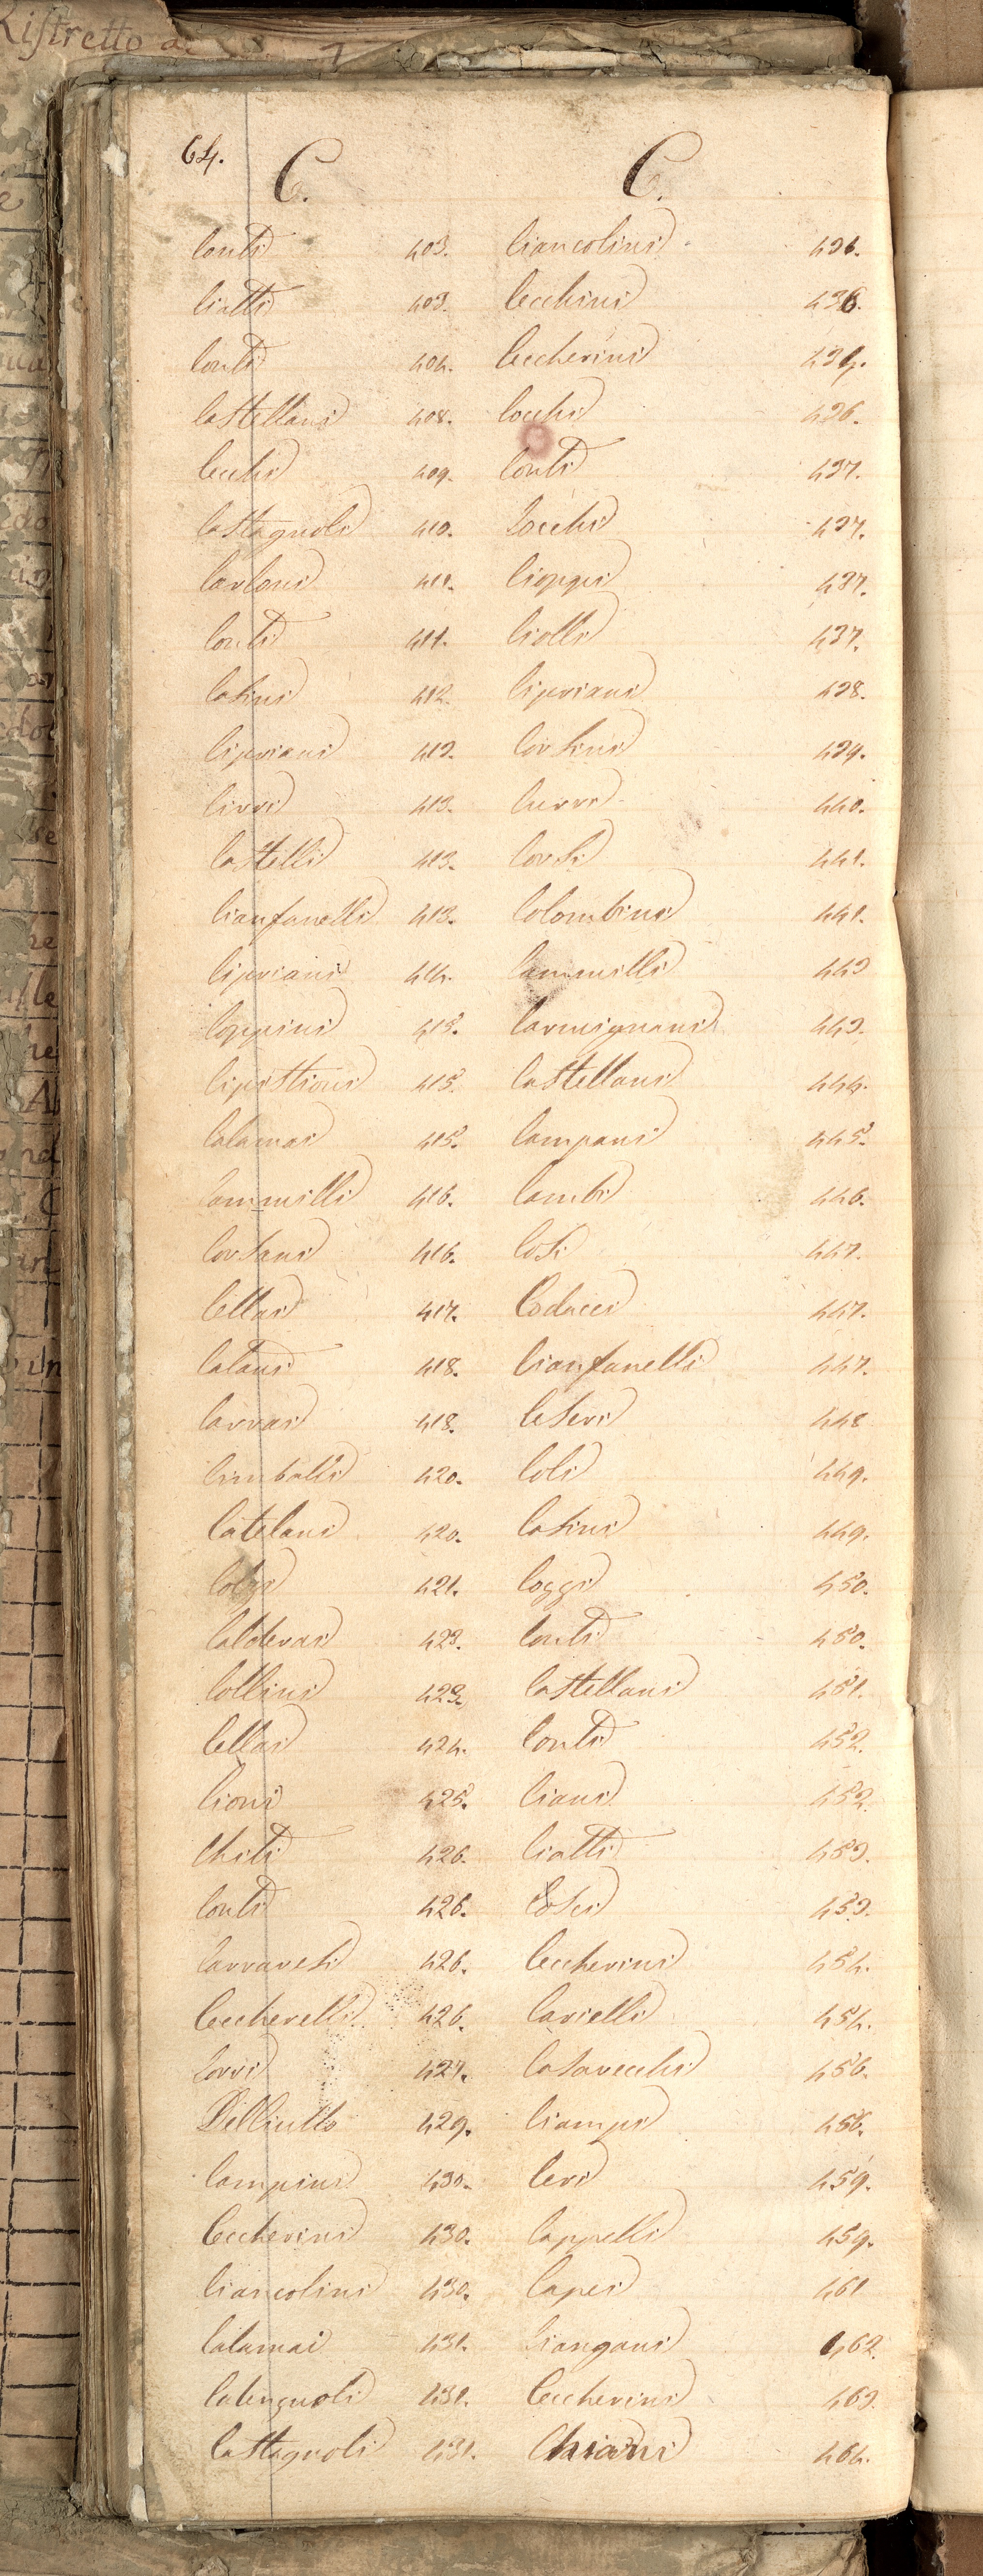 Ristretto de
64.
C. C.
Conti 403. Ciancolini 436.
Ciatti 403. Cecchini 436.
Conti 404. Ceccherini 434.
Castellani 408. Cocchi 436.
Cecchi 409. Conti 437.
Castagnoli 410. Cocchi 437.
Carloni 411. Cioppi 437.
Conti 411. Ciolli 437.
Casini 412. Cipriani 438.
Cipriani 412. Corsini 439.
Cirri 413. Curri 440.
Castelli 413. Corsi 441.
Cianfanelli 413. Colombini 441.
Cipriani 414. Cammilli 443
Coppini 415. Carmignani 443.
Cipistioni 415. Castellani 444.
Calamai 415. Campani 445.
Cammilli 416. Cambi 446.
Corsani 416. Cosi 447.
Cellai 417. Coducci 447.
Catani 418. Cianfanelli 447.
Carrai 418. Ceseri 448
Cimballi 420. Coli 449.
Catelani 420. Casini 449.
421. Coggi 450.
Calderai 423. Conti 450.
Collini 423. Castellani 451.
Cellai 424. Conti 452.
Cioni 425. Ciani 452.
Chiti 426. Ciatti 453.
Conti 426. Cosci 453.
Carraresi 426. Ceccherini 454.
Ceccherelli 426. Carielli 454.
Corri 427. Casavecchi 456.
429. Ciampi 456.
Campini 430. Ceri 459.
Ceccherini 430. Cappelli 459.
Ciancolini 430. Capei 461
Calamai 431. Ciangani 462.
431. Ceccherini 463.
Castagnoli 431. Chiarini 464.